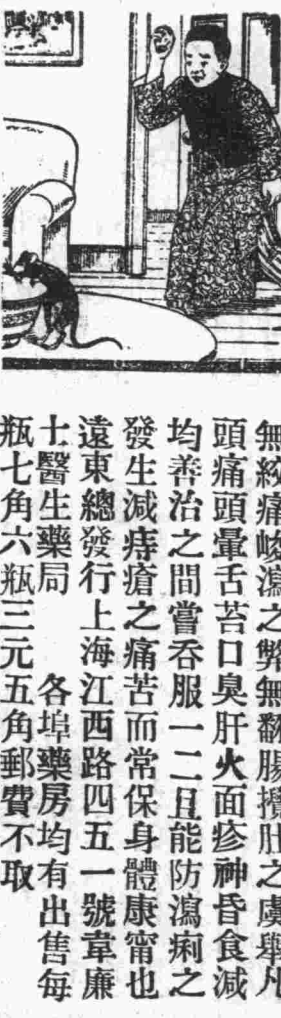 無絞痛峻瀉之弊無翻腸攪肚之虞舉凡
頭痛頭暈舌苔口臭肝火面疹神昏食減
均善治之間嘗吞服一二且能防瀉痢之
發生減痔瘡之痛苦而常保身體康甯也
遠東總發行上海江西路四五一號韋廉
士醫生藥局　各埠藥房均有出售每
瓶七角六瓶三元五角郵費不取